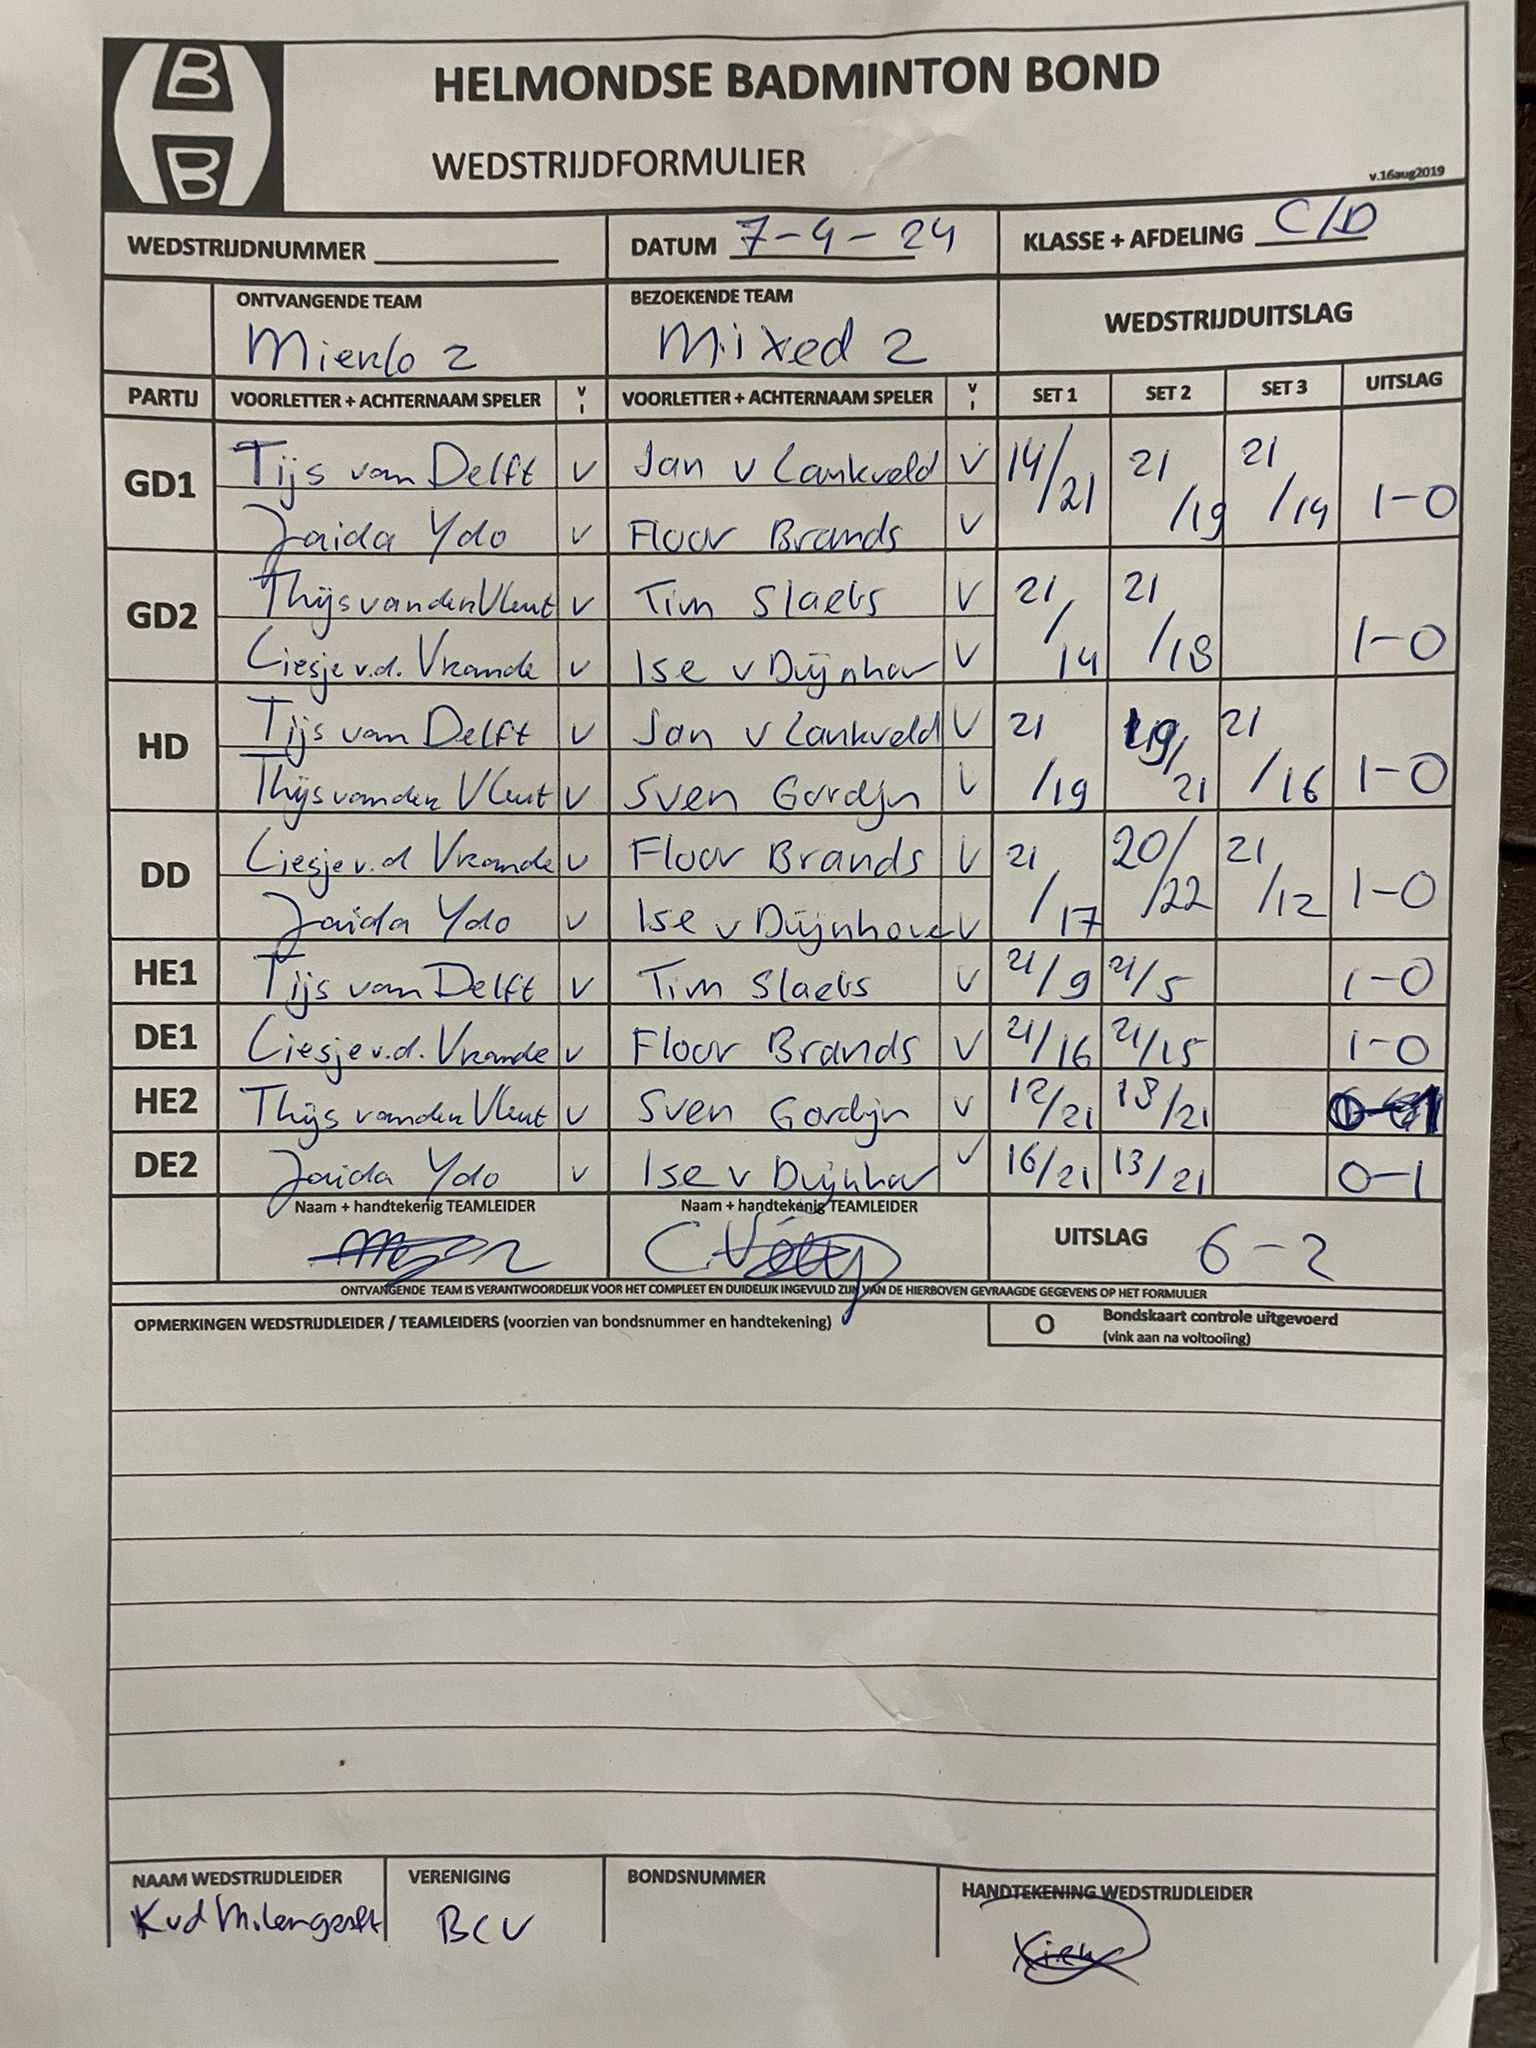 B
B
HELMONDSE BADMINTON BOND
WEDSTRIJDFORMULIER
v.16aug2019
WEDSTRIJDNUMMER DATUM 7-4-24 KLASSE + AFDELING C/D
ONTVANGENDE TEAM BEZOEKENDE TEAM WEDSTRIJDUITSLAG
Mierlo 2 Mixed 2
PARTIJ VOORLETTER + ACHTERNAAM SPELER V I VOORLETTER + ACHTERNAAM SPELER V I SET 1 SET 2 SET 3 UITSLAG
GD1 Tijs van Delft v Jan v Lankveld v 14/21 21/19 21/14 1-0
Jaida Ydo v Floor Brands v
GD2 Thijs van den Vleut v Tim Slaets v 21/14 21/18 1-0
Liesje v.d. Vrande v Ise v Duijnhov v
HD Tijs van Delft v Jan v Lankveld v 21/19 19/21 21/16 1-0
Thijs van den Vleut v Sven Gordijn v
DD Liesje v.d Vrande v Floor Brands v 21/17 20/22 21/12 1-0
Jaida Ydo v Ise v Duijnhove v
HE1 Tijs van Delft v Tim Slaets v 21/9 21/5 1-0
DE1 Liesje v.d. Vrande v Floor Brands v 21/16 21/15 1-0
HE2 Thijs van den Vleut v Sven Gordijn v 12/21 18/21 0-1
DE2 Jaida Ydo v Ise v Duijnhov v 16/21 13/21 0-1
Naam + handtekenig TEAMLEIDER Naam + handtekenig TEAMLEIDER UITSLAG 6-2
ONTVANGENDE TEAM IS VERANTWOORDELIJK VOOR HET COMPLEET EN DUIDELIJK INGEVULD ZIJN VAN DE HIERBOVEN GEVRAAGDE GEGEVENS OP HET FORMULIER
OPMERKINGEN WEDSTRIJDLEIDER / TEAMLEIDERS (voorzien van bondsnummer en handtekening) O Bondskaart controle uitgevoerd
(vink aan na voltooiing)
NAAM WEDSTRIJDLEIDER VERENIGING BONDSNUMMER HANDTEKENING WEDSTRIJDLEIDER
Kvd BCV